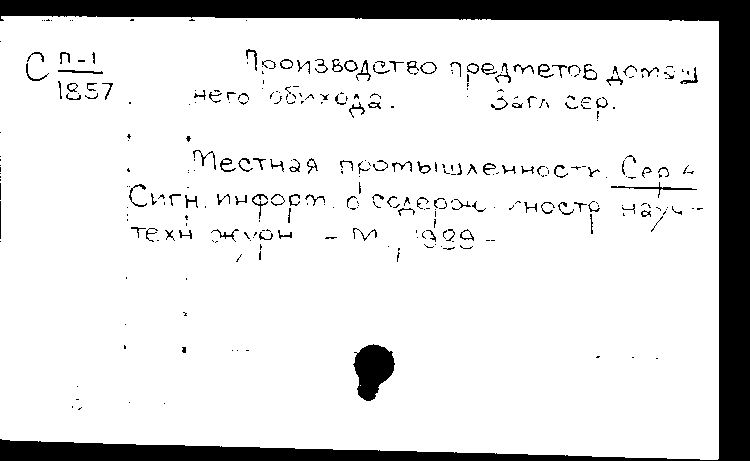 С П-1
1857
Производство предметов домаш
него обихода. Загл сер.
Местная промышленность. Сер 4
Сигн. информ. о содерж. иностр науч-
техн журн - М., 1989-